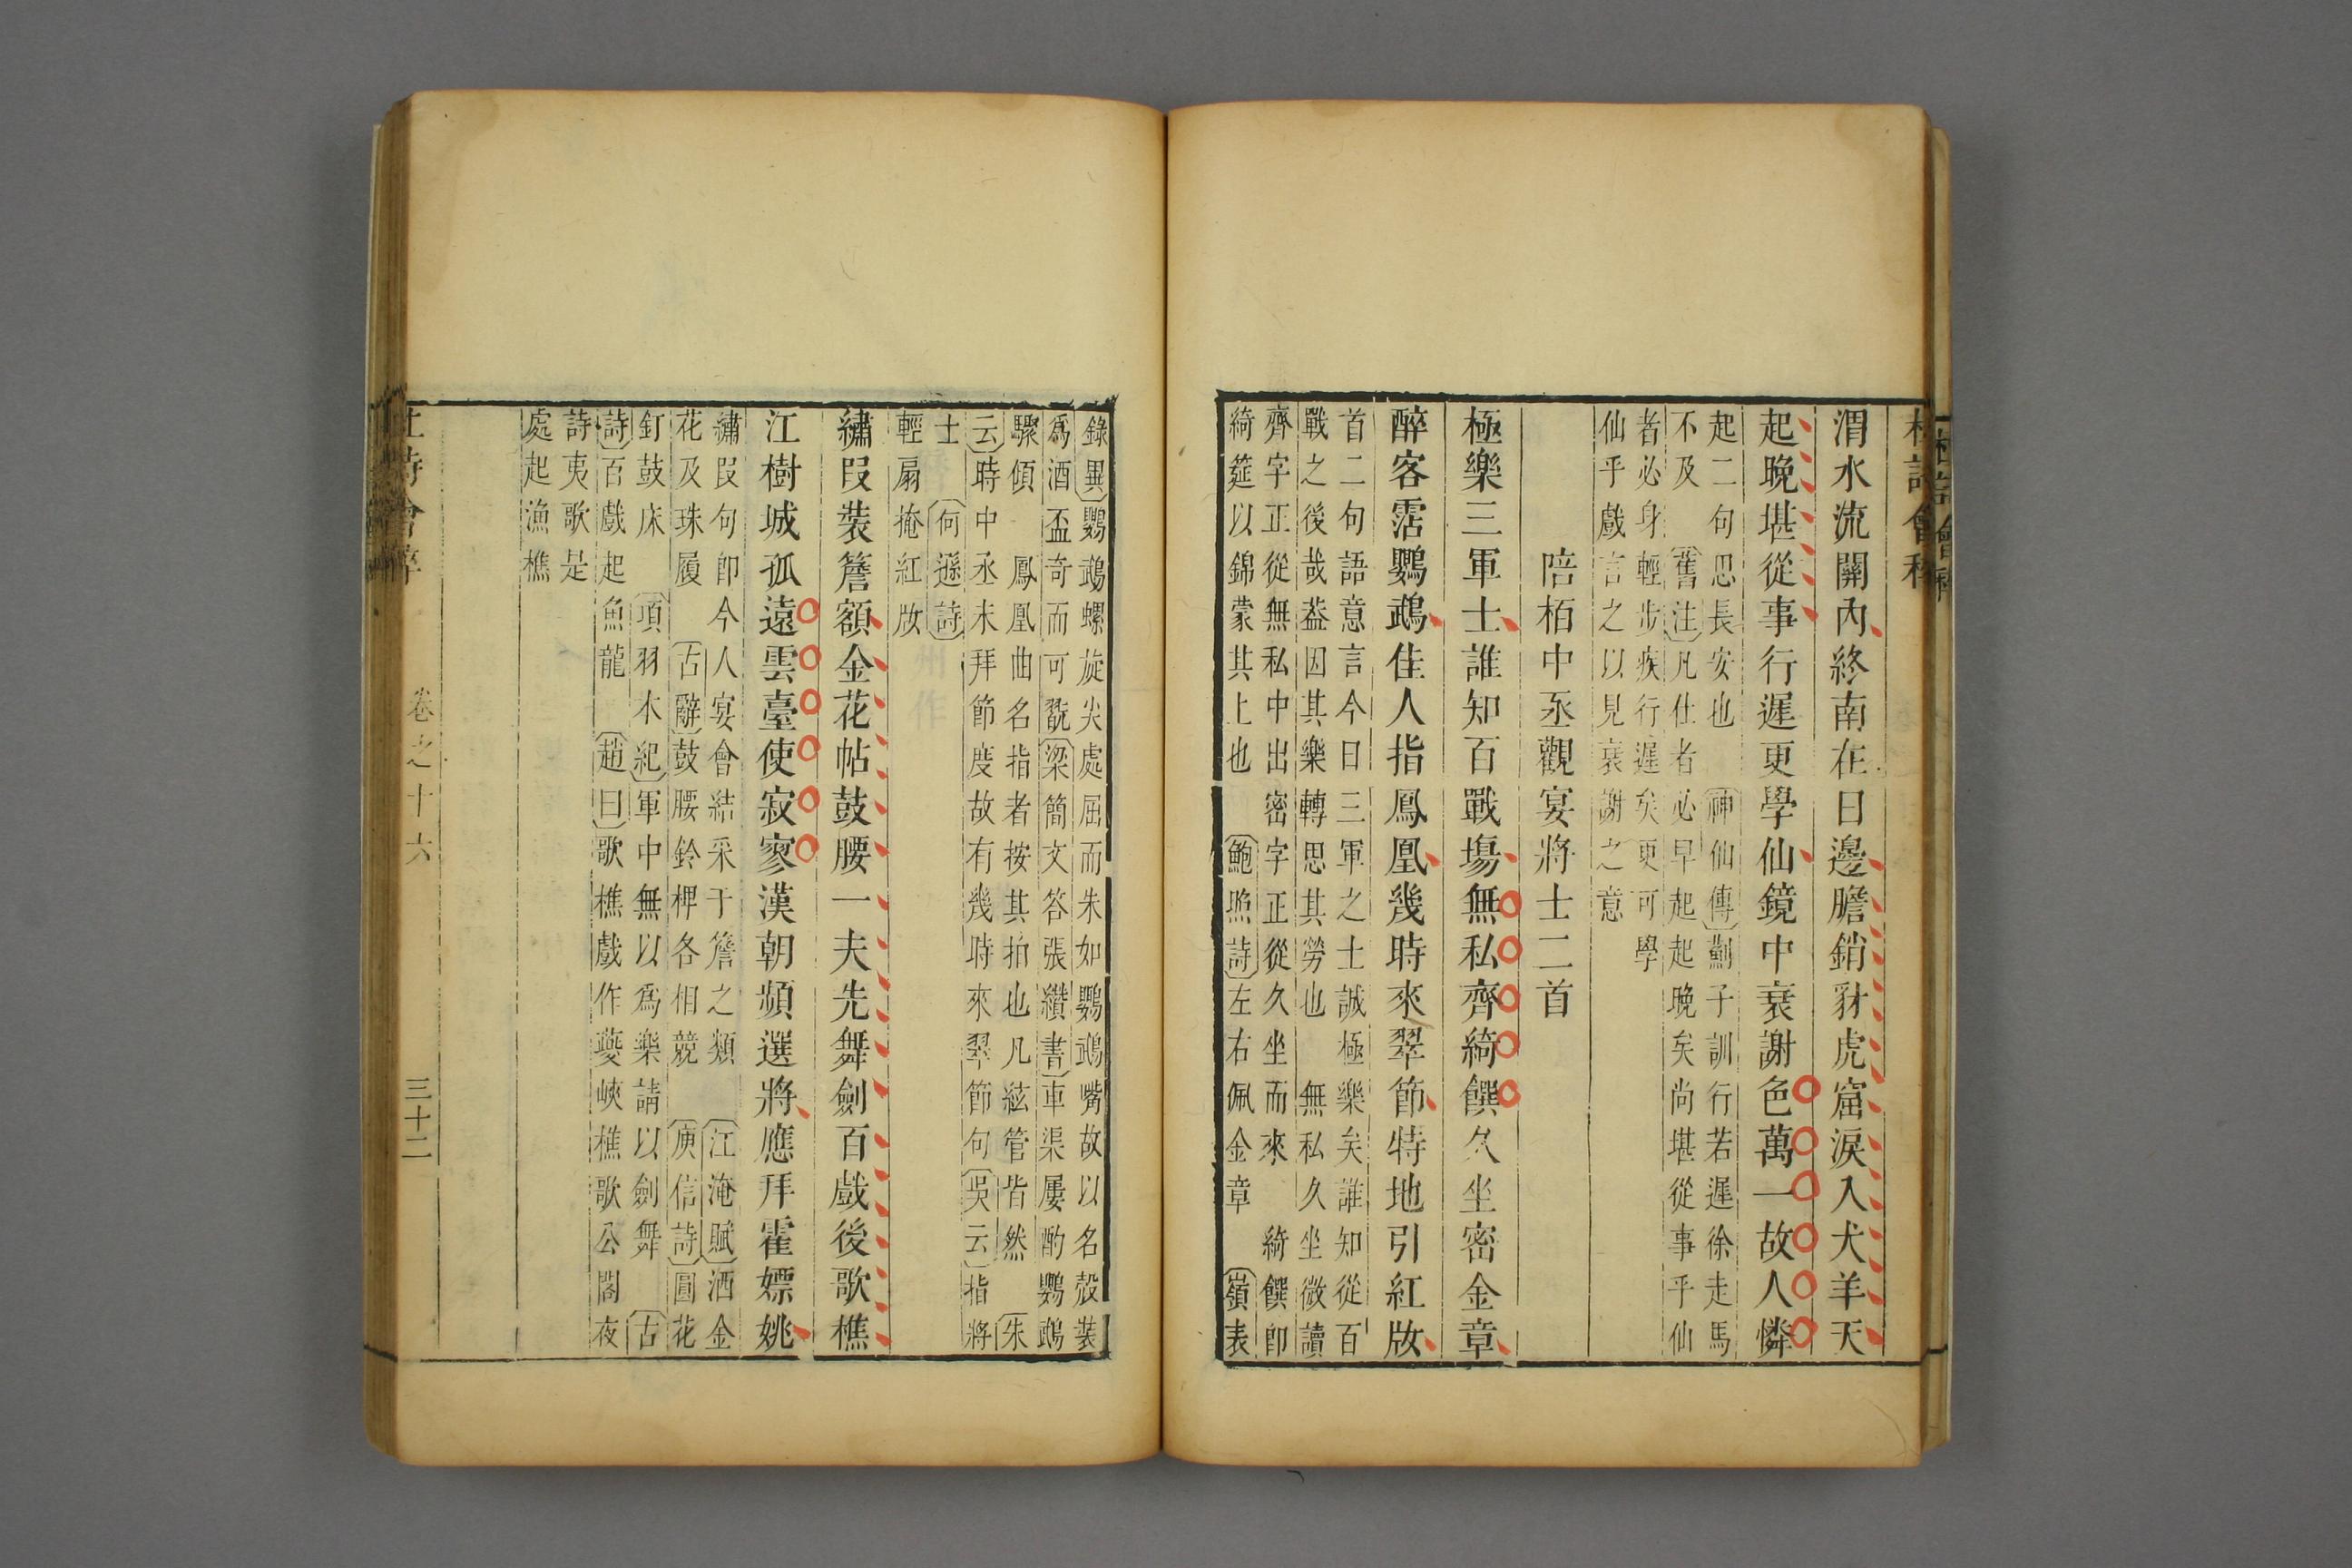 渭水流關內終南在日邊膽銷豺虎窟淚入犬羊天
起晚堪從事行遲更學仙鏡中衰謝色萬一故人憐
起二句思長安也 神仙傳薊子訓行若遲徐走馬
不及 舊注凡仕者必早起起晚矣尚堪從事乎仙
者必身輕步疾行遲矣更可學
仙乎戲言之以見衰謝之意
陪栢中丞觀宴將士二首
極樂三軍士誰知百戰場無私齊綺饌久坐密金章
醉客霑鸚鵡佳人指鳳凰幾時來翠節特地引紅妝
首二句語意言今日三軍之士誠極樂矣誰知從百
戰之後哉葢因其樂轉思其勞也 無私久坐微讀
齊字正從無私中出密字正從久坐而來 綺饌卽
綺筵以錦蒙其上也 鮑照詩左右佩金章 嶺表
錄異鸚鵡螺旋尖處屈而朱如鸚鵡嘴故以名殼裝
爲酒盃奇而可翫梁簡文答張纘書車渠屢酌鸚鵡
驟傾 鳳凰曲名指者按其拍也凡絃管皆然 朱
云時中丞未拜節度故有幾時來翠節句吳云指將
士 何遜詩
輕扇掩紅妝
繡段裝簷額金花帖鼓腰一夫先舞劍百戲後歌樵
江樹城孤遠雲臺使寂寥漢朝頻選將應拜霍嫖姚
繡段句卽今人宴會結采于簷之類 江淹賦酒金
花及珠履 古辭鼓腰鈴椑各相競 庾信詩圓花
釘鼓床 項羽本紀軍中無以爲樂請以劍舞 古
詩百戲起魚龍 趙曰歌樵戲作夔峽樵歌公閣夜
詩夷歌是
處起漁樵
杜詩會稡 卷之十六 三十二